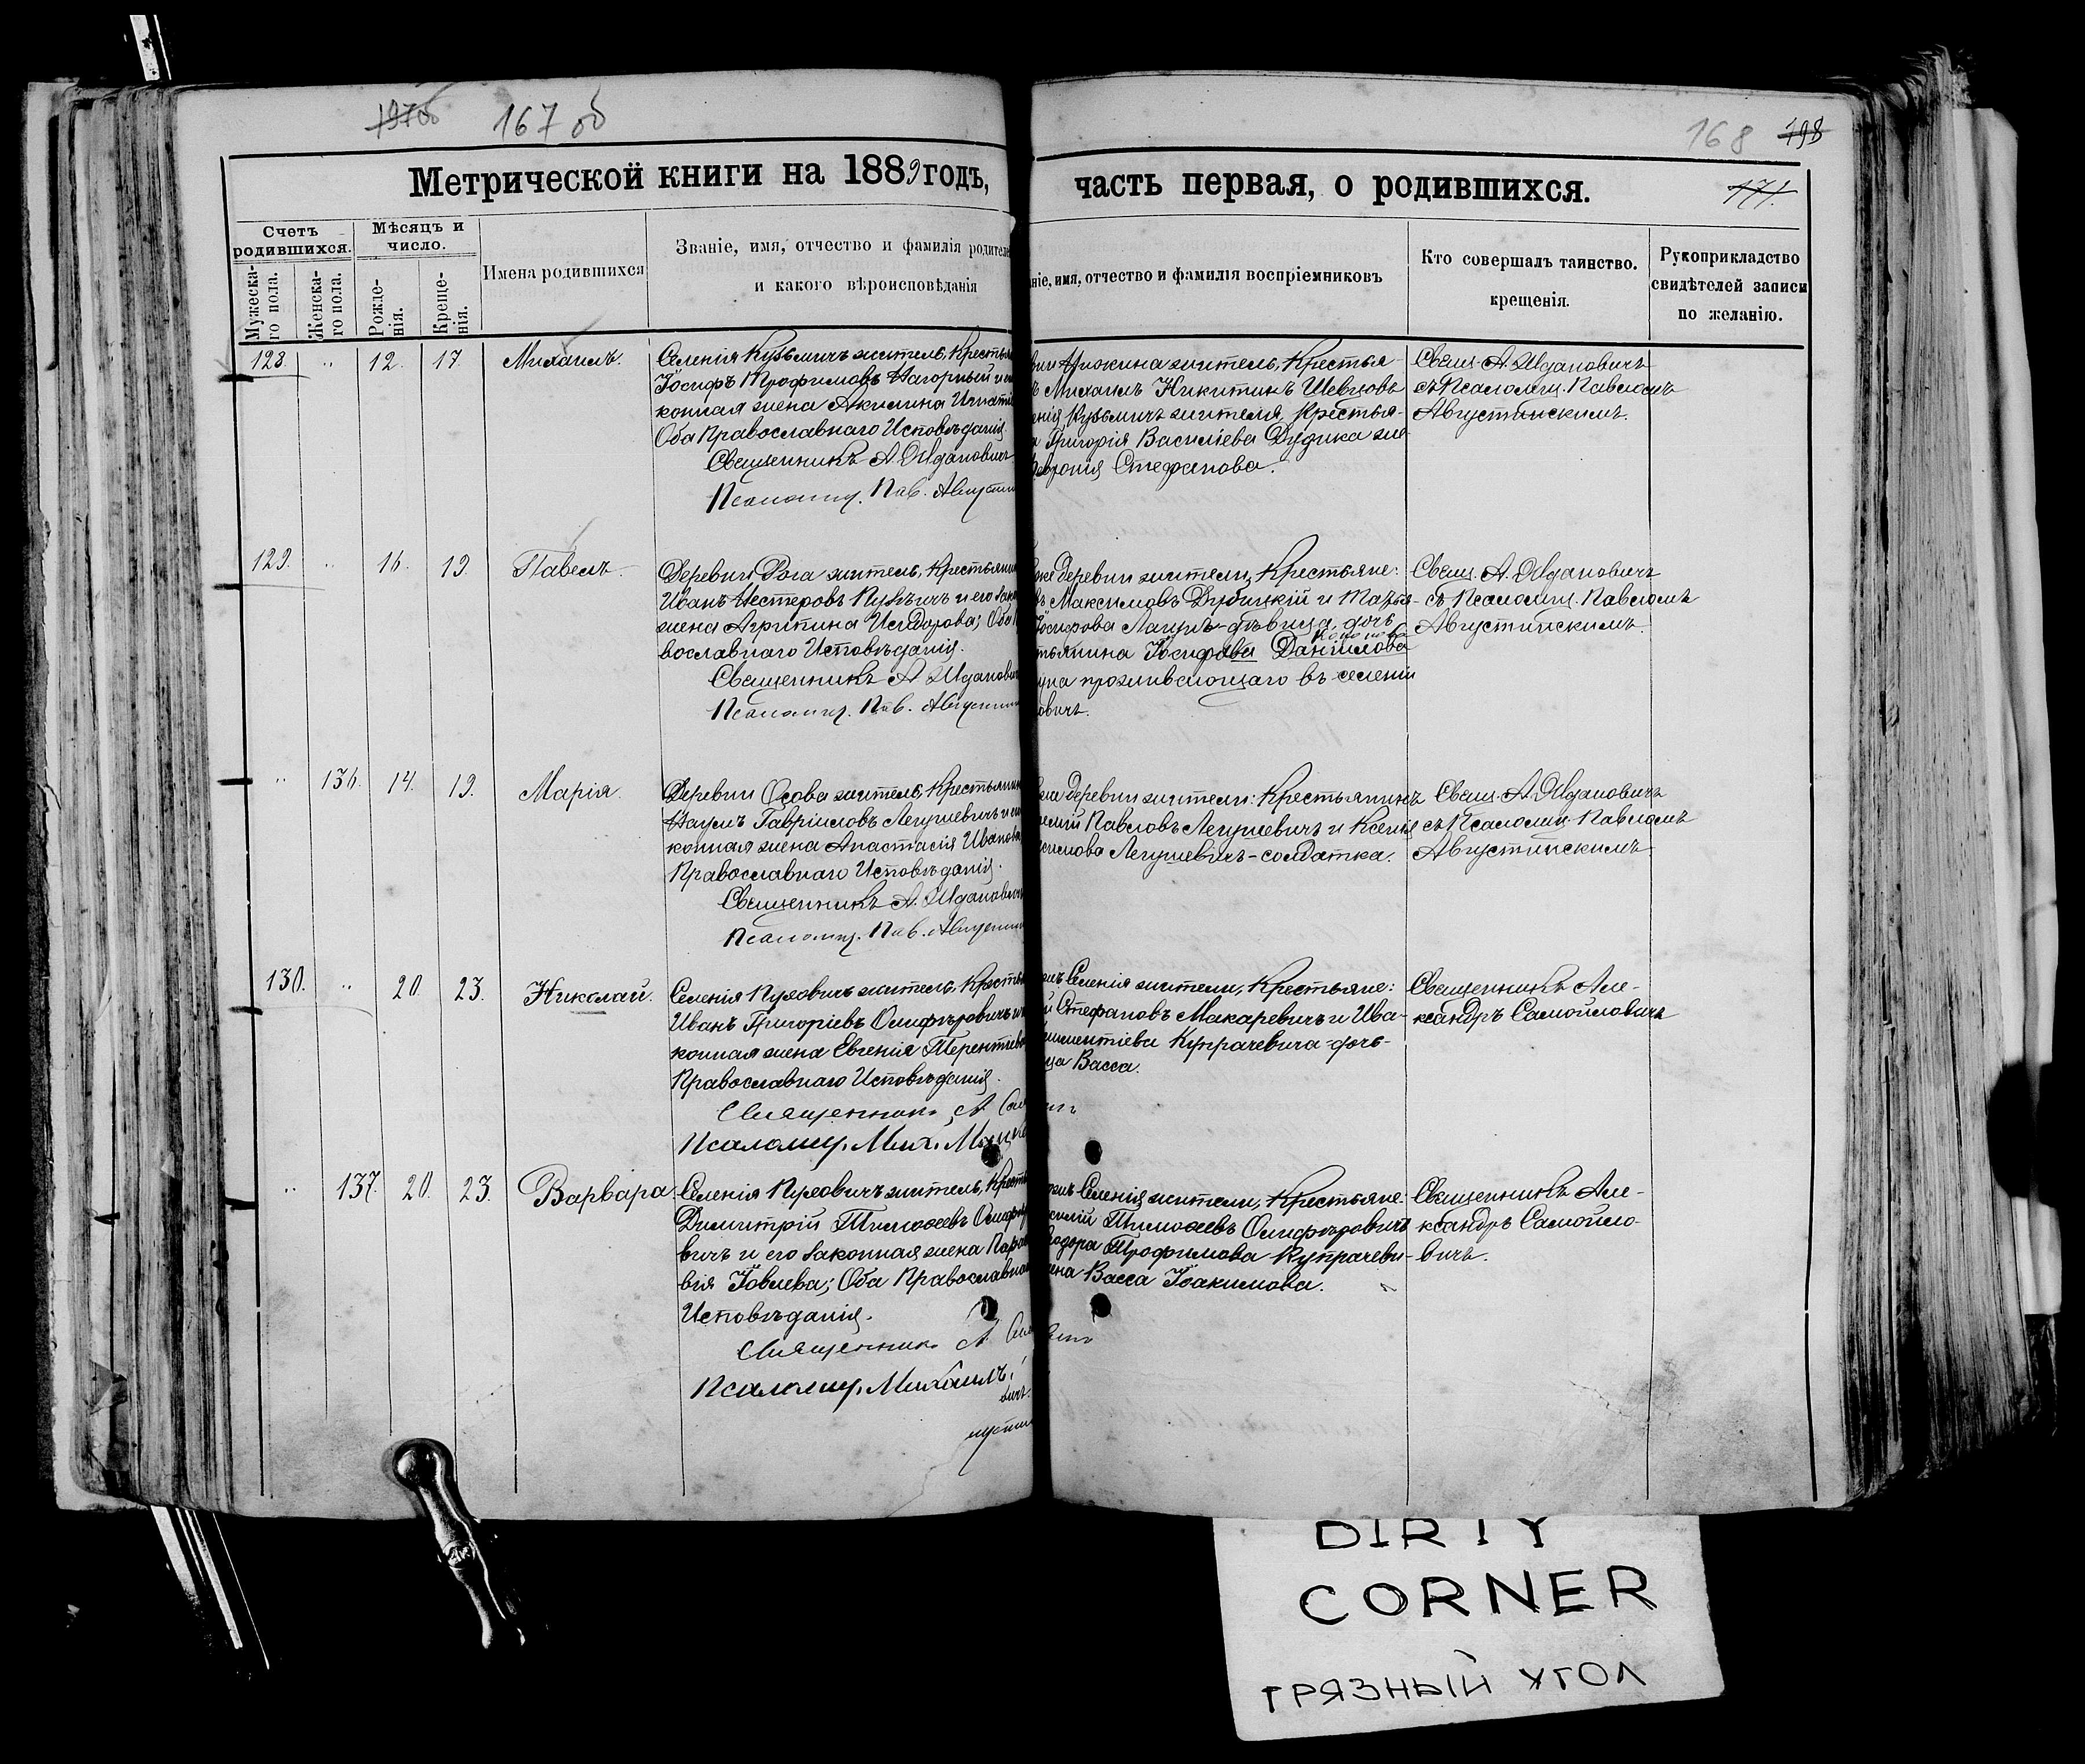 167 об
168
Метрической книги на 1889 годъ, часть первая, о родившихся.
Счетъ родившихся.
Мѣсяцъ и число.
Мужеска-го пола.
Женска-го пола.
Рожде-нія.
Креще-нія.
Имена родившихся
Званіе, имя, отчество и фамилія родителе
и какого вѣроисповѣданія
ніе, имя, отчество и фамилія воспріемниковъ
Кто совершалъ таинство.
крещенія.
Рукоприкладство
свидѣтелей записи
по желанію.
128. " 12. 17. Михаилъ.
Селенія Кузьмичъ житель, Крестья
Іосифъ Трофимовъ Нагорный и
конная жена Акилина Игнаті
Оба Православнаго Исповѣданія.
Священникъ А. Жданович
Псаломщ. Пав. Августин
житель, Крестья-
Михаилъ Никитинъ Шевцовъ
енія Кузьмичъ жителя, Крестья-
Григорія Васильева Дудика же
Февронія Стефанова.
Свящ. А. Ждановичъ
съ Псаломщ. Павломъ
Августинскимъ.
129. " 16. 19. Павелъ.
Деревни Рога житель, Крестьянин
Иванъ Нестеровъ Кузьмичъ и его зако
жена Агрипина Исидорова; Оба
вославнаго Исповѣданія.
Священникъ А. Жданович
Псаломщ. Пав. Августин
же деревни жители, Крестьяне:
Максимовъ Дубицкій и
Іосифова дѣвица, дочь
тьянина Іосифова Даніилова
проживающаго въ селеніи
овичъ.
Свящ. А. Ждановичъ
съ Псаломщ. Павломъ
Августинскимъ.
" 136. 14. 19. Марія.
Деревни Осова житель, Крестьянин
Наумъ Гавріиловъ Легушевичъ и
конная жена Анастасія Иванова
Православнаго Исповѣданія.
Священникъ А. Жданович
Псаломщ. Пав. Августин
деревни жители: Крестьянинъ
Павловъ Легушевичъ и Ксенія
Легушевичъ-солдатка.
Свящ. А. Ждановичъ
съ Псаломщ. Павломъ
Августинскимъ
130. " 20. 23. Николай.
Селенія Пуховичъ житель, Крестья
Иванъ Григоріевъ Олифѣровичъ и
конная жена Евгенія Терентіев
Православнаго Исповѣданія.
Священникъ А. Сам
Псаломщ. Мих.
Селенія жители, Крестьяне:
Стефановъ Макаревичъ и Ива-
Купрачевича-дочь-
ца Васса.
Священникъ Але-
ксандръ Самойловичъ
" 137. 20. 23. Варвара.
Селенія Пуховичъ житель, Крестья
Димитрій Тимоѳеевъ Олифѣро
вичъ и его законная жена Парас
вія Іовлева; Оба Православнаго
Исповѣданія.
Священникъ А. Сам
Псаломщ. Михаилъ
Селенія жители, Крестьяне:
силій Тимоѳеевъ Олифѣровичъ
Трофимова Купрачеви-
жена Васса Іоакимова.
Священникъ Але-
ксандръ Самойло-
вичъ.
DIRTY
CORNER
ГРЯЗНЫЙ УГОЛ